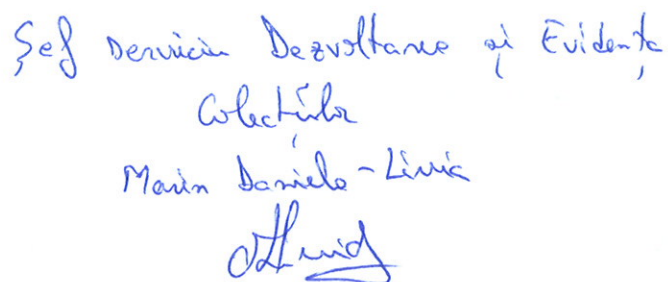 Șef Serviciu Dezvoltarea și Evidența
Colecțiilor
Marin Daniela-Livia